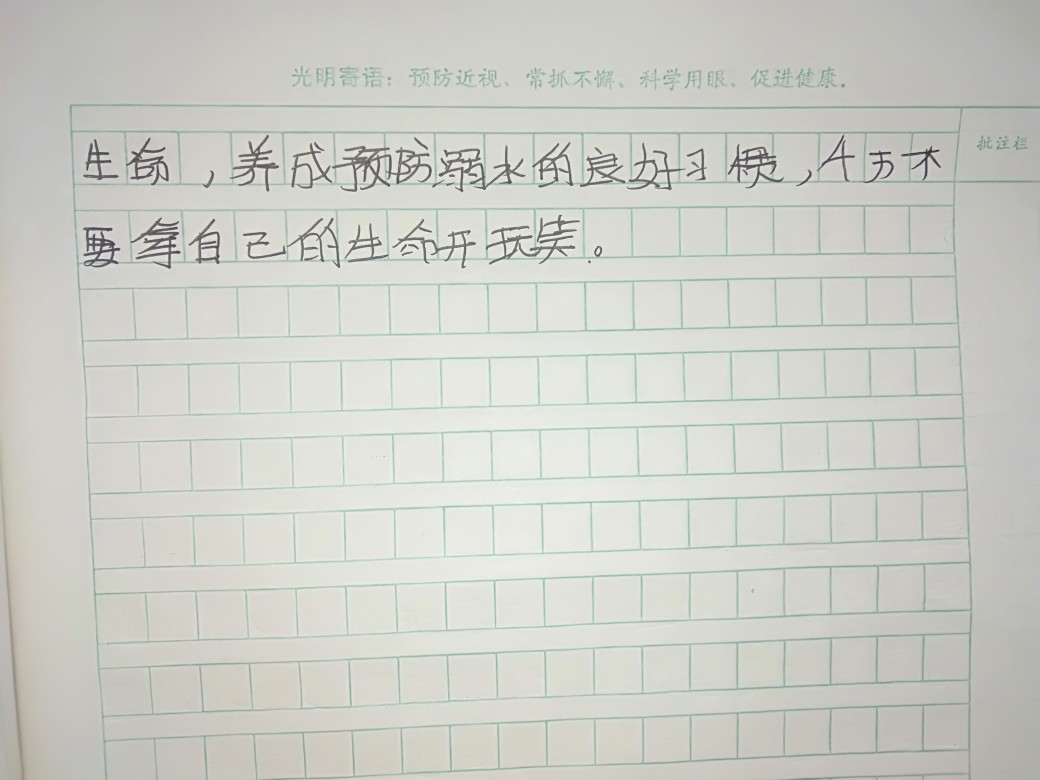 光明寄语：预防近视、常抓不懈、科学用眼、促进健康。
批注栏
生命，养成预防溺水的良好习惯，千万不
要拿自己的生命开玩笑。